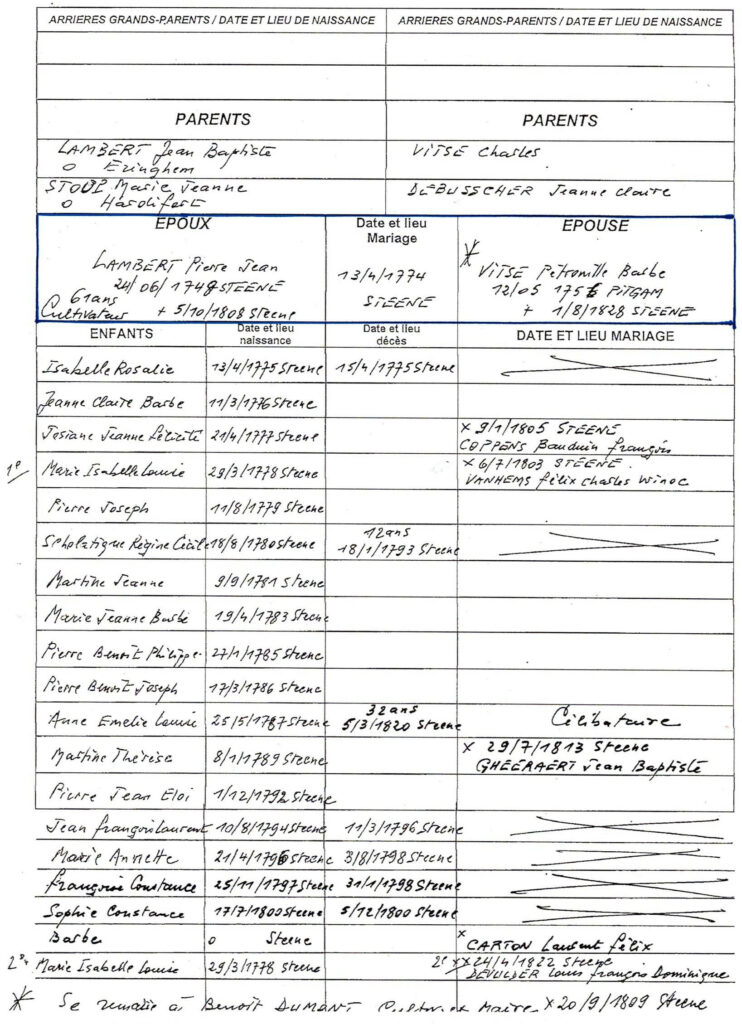 ARRIERES GRANDS-PARENTS / DATE ET LIEU DE NAISSANCE ARRIERES GRANDS-PARENTS / DATE ET LIEU DE NAISSANCE
PARENTS PARENTS
LAMBERT Jean Baptiste VITSE Charles
o Eringhem
Marie Jeanne DEBUSSCHER Jeanne Claire
o Hardifort
EPOUX Date et lieu Mariage EPOUSE
LAMBERT Pierre Jean 13/4/1774 VITSE Petronille Barbe
24/06/1748 STEENE STEENE 12/05 1756 PITGAM
61ans
Cultivateur + 5/10/1808 Steene + 1/8/1828 STEENE
ENFANTS Date et lieu naissance Date et lieu décès DATE ET LIEU MARIAGE
Isabelle Rosalie 13/4/1775 Steene 15/4/1775 Steene
Jeanne Claire Barbe 11/3/1776 Steene
Josiane Jeanne Félicité 21/4/1777 Steene x 9/1/1805 STEENE
COPPENS Bauduin françois
1e Marie Isabelle Louise 29/3/1778 Steene x 6/7/1803 STEENE.
VANHEMS félix Charles Winoc
Pierre Joseph 11/8/1779 Steene
Scholatique Régine Cécile 18/8/1780 Steene 12ans
18/1/1793 Steene
Martine Jeanne 9/9/1781 Steene
Marie Jeanne Barbe 19/4/1783 Steene
Pierre Benoit Philippe 27/1/1785 Steene
Pierre Benoit Joseph 17/3/1786 Steene
Anne Emelie Louise 25/5/1787 Steene 32ans
5/3/1820 Steene Célibataire
Martine Thérèse 8/1/1789 Steene x 29/7/1813 Steene
GHEERAERT Jean Baptiste
Pierre Jean Eloi 1/12/1792 Steene
Jean françois Laurent 10/8/1794 Steene 11/3/1796 Steene
Marie Annette 21/4/1796 Steene 3/8/1798 Steene
françoise Constance 25/11/1797 Steene 31/1/1798 Steene
Sophie Constance 17/7/1800 Steene 5/12/1800 Steene
Barbe o Steene x CARTON Laurent félix
Marie Isabelle Louise 29/3/1778 Steene xx 24/4/1822 Steene
DEVULDER Louis françois Dominique
Se remarie à Benoit DUMONT Cultiv et Maire x 20/9/1809 Steene